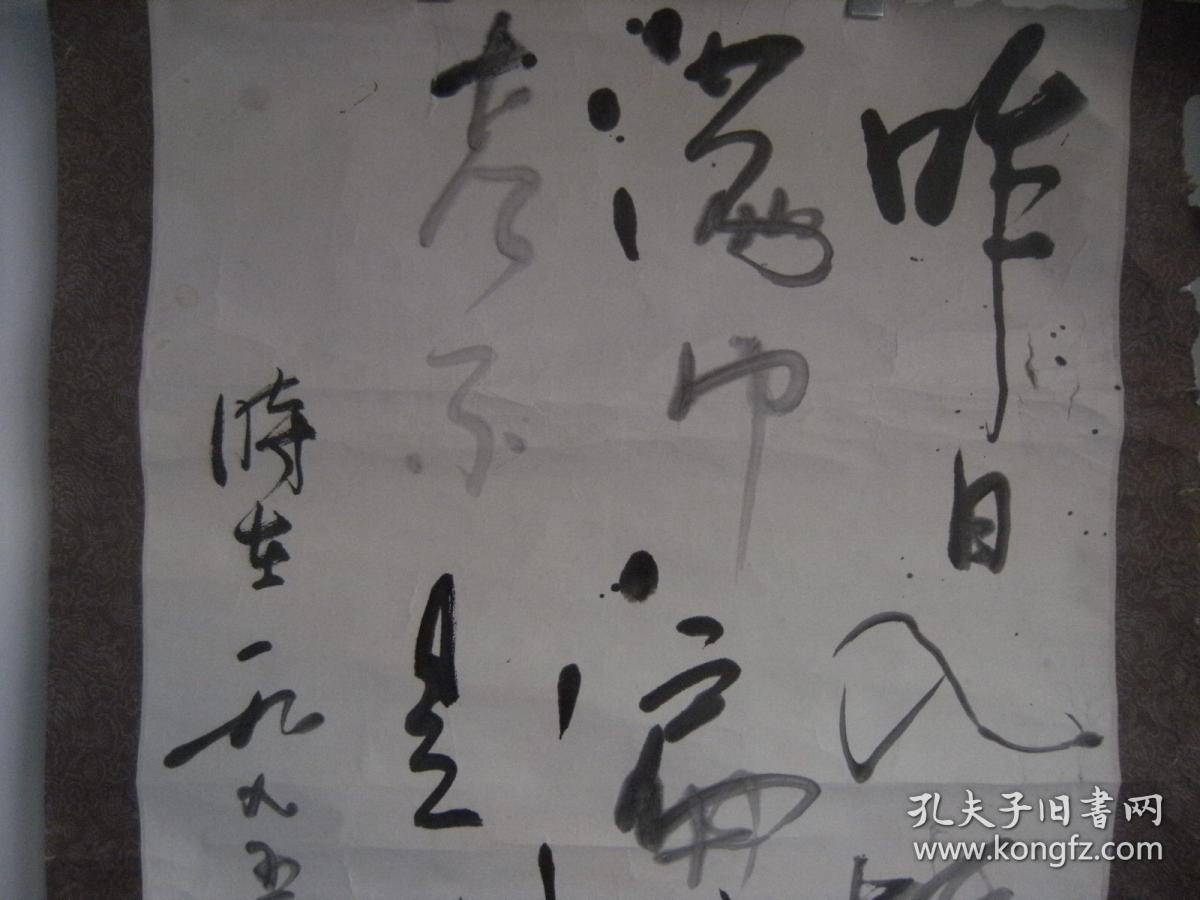 昨日入城
满巾 遍
者 不是
時在一九九五
孔夫子旧书网
www.kongfz.com